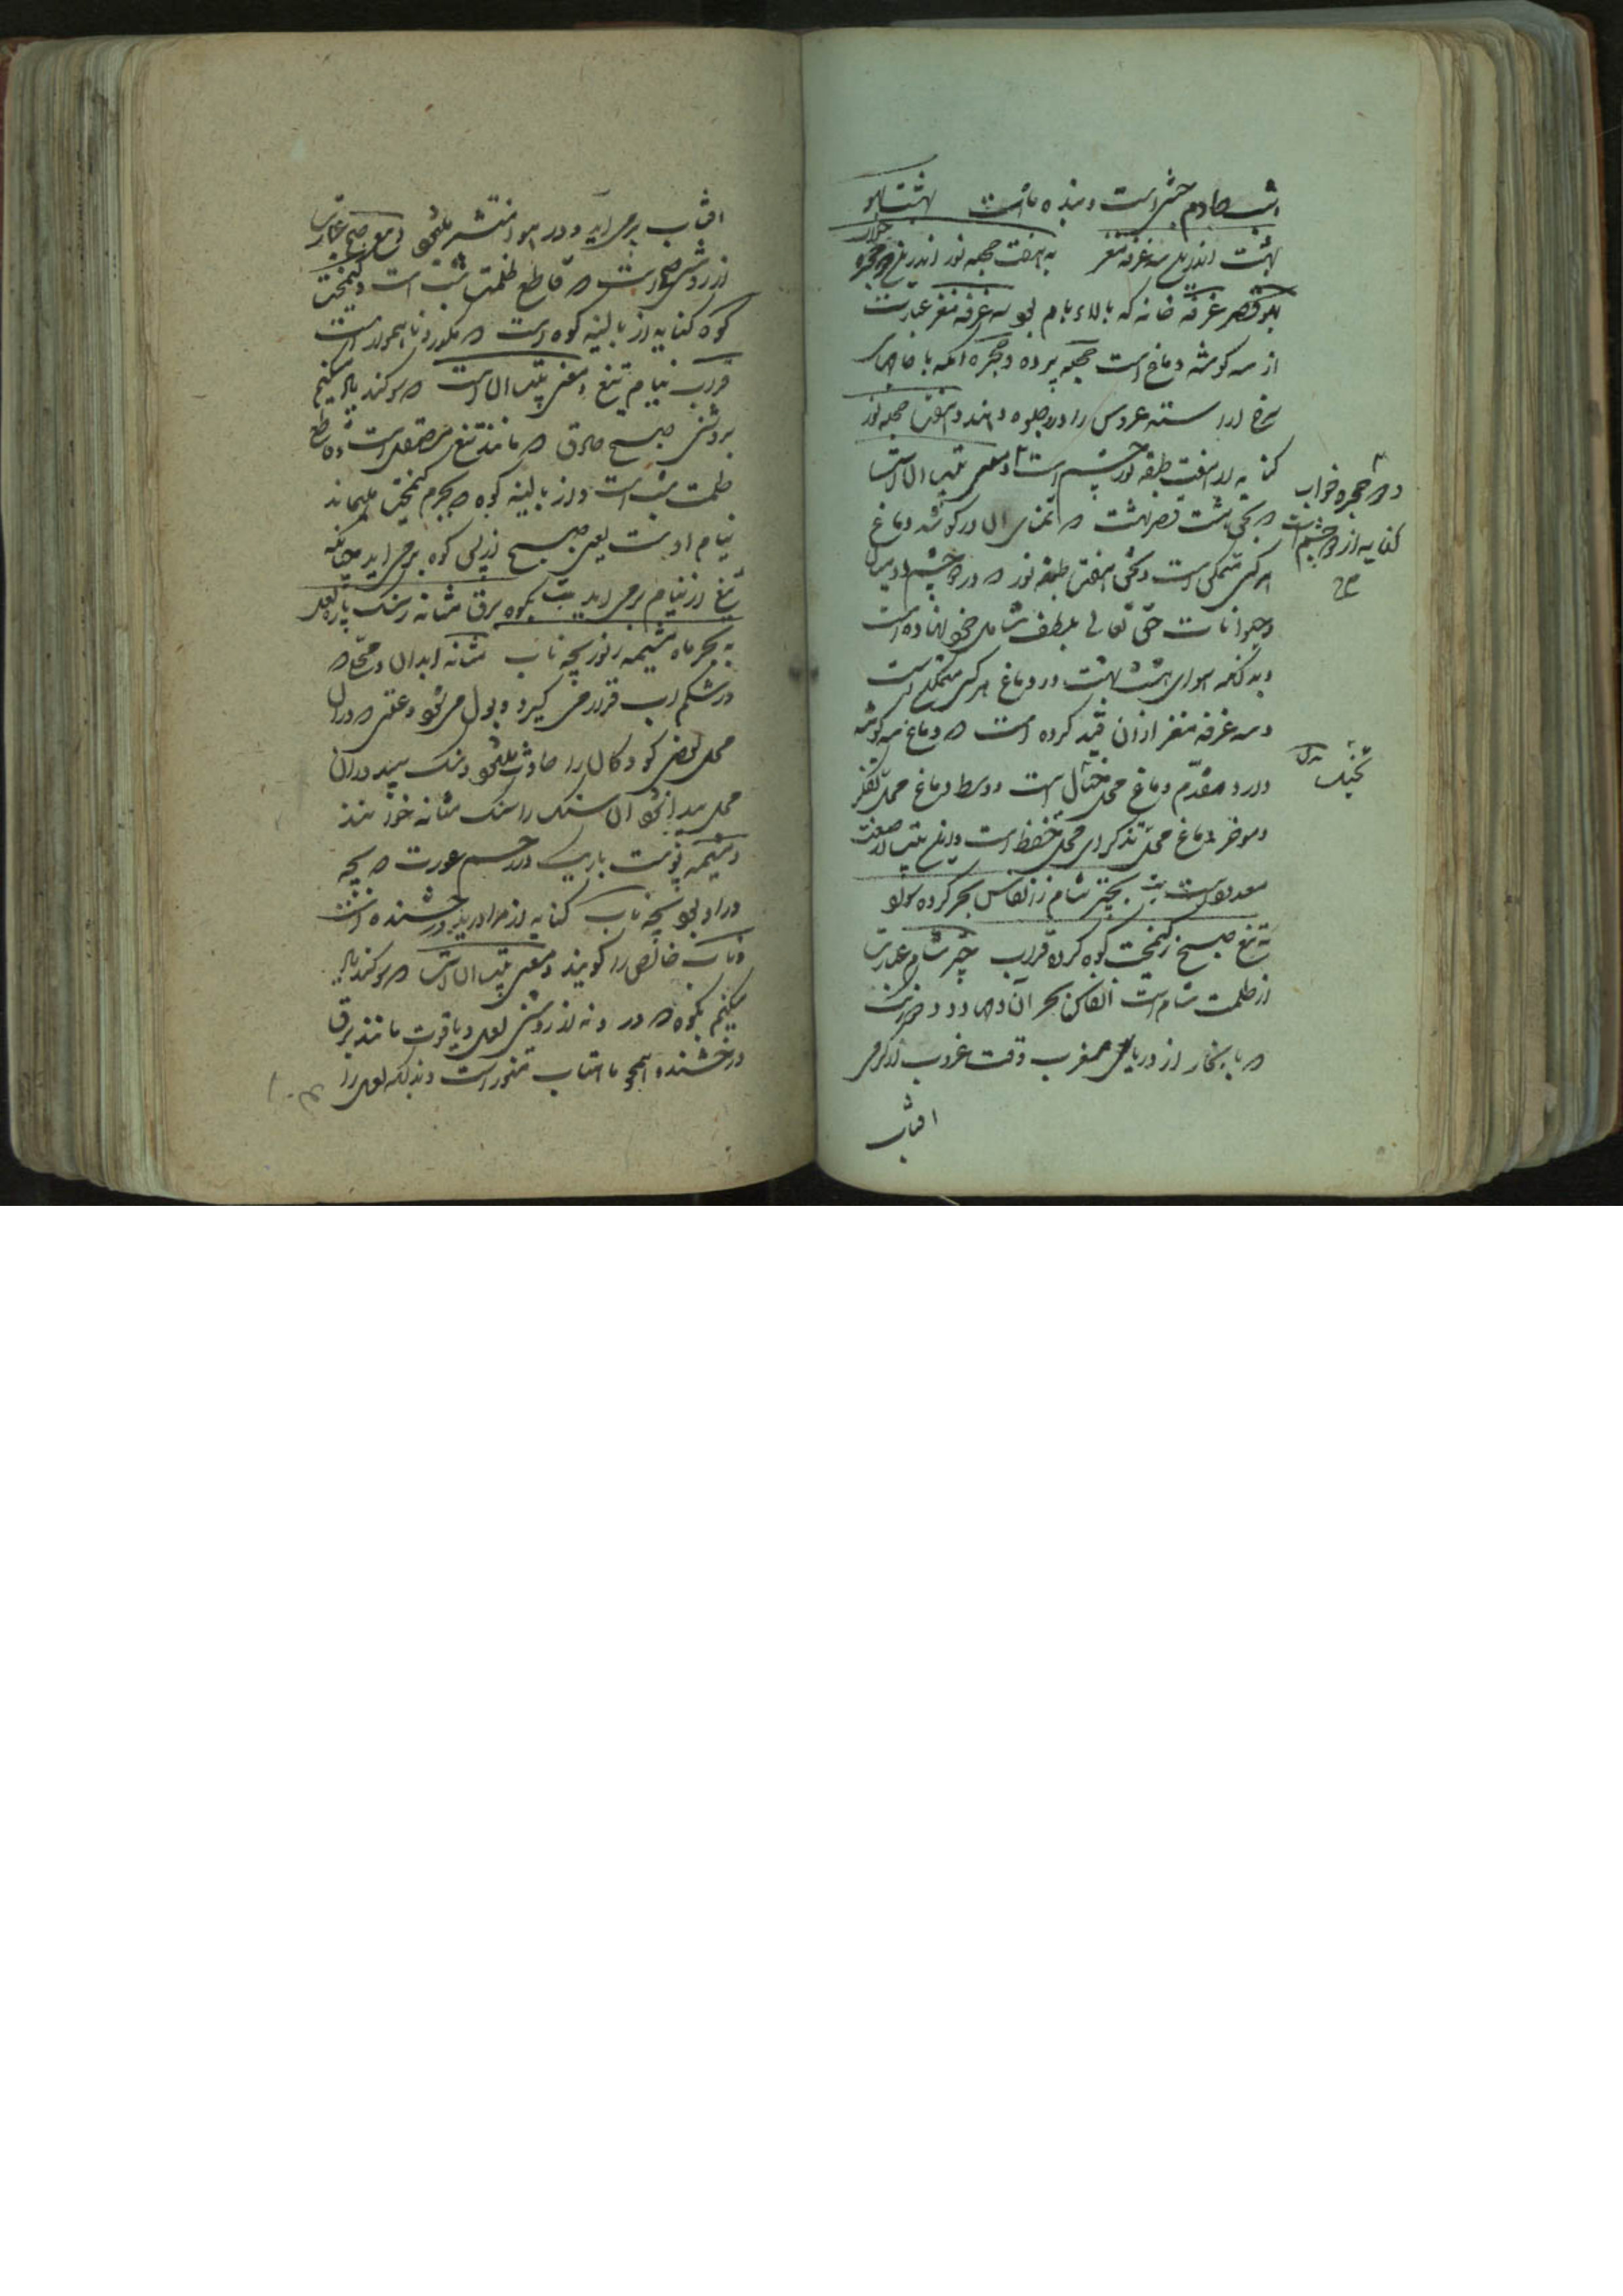 است و بنده ماست بهشت
بهشت اندرین سه غرفه مغز به هفت حجله نور اندرین دو حجره
قصر غرفه خانه که بالای بام بود سه غرفه مغز عبارت
از سه گوشه دماغ است حجله پرده و حجره آنکه با جامهای
سرخ آراسته عروس را در و جلوه دهند و هفت حجله نور
کنایه از هفت طبقه نور چشم است و معنی بیت آن است
که بحق هشت قصر بهشت که تمنای آن در گوشه دماغ
هر کس متمکن است و بحق هفت طبقه نور که در دو چشم آدمیان
و حیوانات حق تعالی بلطف شامل خود نهاده است
و بدانکه هوای هشت بهشت در دماغ هر کس متمکن است
و سه غرفه مغز از آن قید کرده است که دماغ سه گوشه
دارد مقدم دماغ محل خیال است و وسط دماغ محل تفکر
و موخر دماغ محل تذکر ای محل تحفظ است و این بیت از صنعت
بیت بچتر شام ز انفاس بحر کرده سواد
به تیغ صبح ز کیمخت کوه کرده قراب چتر شام عبارت
از ظلمت شام است انفاس بحر آن دمی و دود
که با بخار از دریای مغرب وقت غروب از گرمی
افتاب
و دو حجره خواب
کنایه از دو چشم است
صح
تجنیس
افتاب برمی آید و در هوا منتشر میشود و تیغ صبح عبارت
از روشنی صبح است که قاطع ظلمت شب است و کیمخت
کوه کنایه از بالینه کوه است که مکور و ناهموار است
قراب نیام تیغ و معنی بیت آن است که سوگند یاد میکنم
بروشنی صبح صادق که مانند تیغ مصقل است و قاطع
ظلمت شب است و از بالینه کوه که بچرم کیمخت میماند
نیام اوست یعنی صبح از پس کوه برمی آید چنانکه
تیغ از نیام برمی آید بیت بکوه برق مثانه ز سنگ پاره لعل
به بحر ماه مشیمه ز نور بچه ناب مثانه آبدان و محلی که
در شکم آب قرار می گیرد و بول می شود و عقدی که در آن
محل بعضی کودکان را حادث میشود و سنگ سپید در آن
محل پیدا شود آن سنگ را سنگ مثانه خوانند
و مشیمه پوست باریک در رحم عورت که بچه
در او بود بچه ناب کنایه از مروارید درخشنده است
و ناب خالص را گویند و معنی بیت آن است که سوگند یاد
میکنم بکوه که در و نه از روشنی لعل و یاقوت مانند برق
درخشنده همچو ماهتاب منور است و بدانکه لعل را